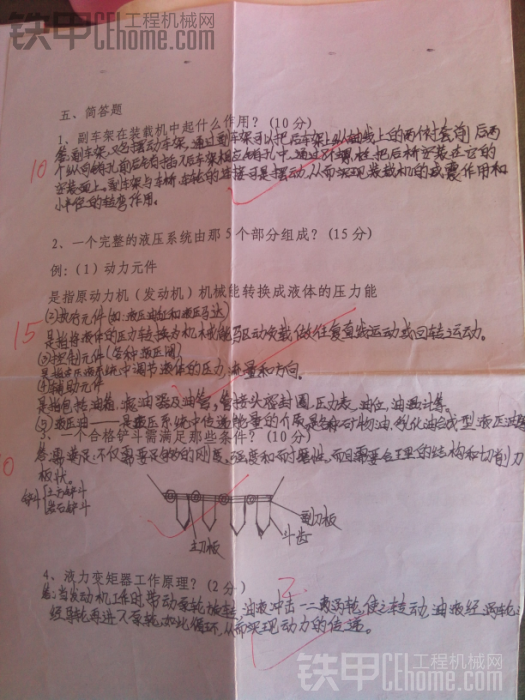 铁甲工程机械网
CEhome.com
五、简答题
1、副车架在装载机中起什么作用？（10分）
答：副车架又名摆动车架，通过副车架可以把后车架上纵轴线上的两个衬套前后两
个纵向销孔前后销插入后车架相应销孔中，通过不螺栓把后桥安装在它的
安装面上，副车架与车桥、车轮的连接可是摆动，从而实现装载机的减震作用和
小半径的转弯作用。
10
2、一个完整的液压系统由那5个部分组成？（15分）
例：（1）动力元件
是指原动力机（发动机）机械能转换成液体的压力能
(2)执行元件（如：液压油缸和液压马达）
15
是指将液体的压力转换为机械能驱动负载做往复直线运动或回转运动。
(3)控制元件（各种液压阀）
是指在液压系统中调节液体的压力、流量和方向。
(4)辅助元件
是指包括油箱、滤油器及油管、管接头密封圈、压力表、油位、油温计等。
(5)液压油——是液压系统中传递能量的介质是各种矿物油，乳化油
3、一个合格铲斗需满足那些条件？（10分）
答：需满足：不仅需要足够的刚度、强度和耐磨性，而且需要合理的结构和切削刀
板状。
铲斗 土方铲斗
岩石铲斗
副刀板
斗齿
主刀板
4、液力变矩器工作原理？（2分）
2
答：当发动机工作时带动泵轮旋转，油液冲击一二级涡轮，使之转动，油液经涡轮
经导轮再进入泵轮，如此循环，从而实现动力的传递。
铁甲工程机械网
CEhome.com